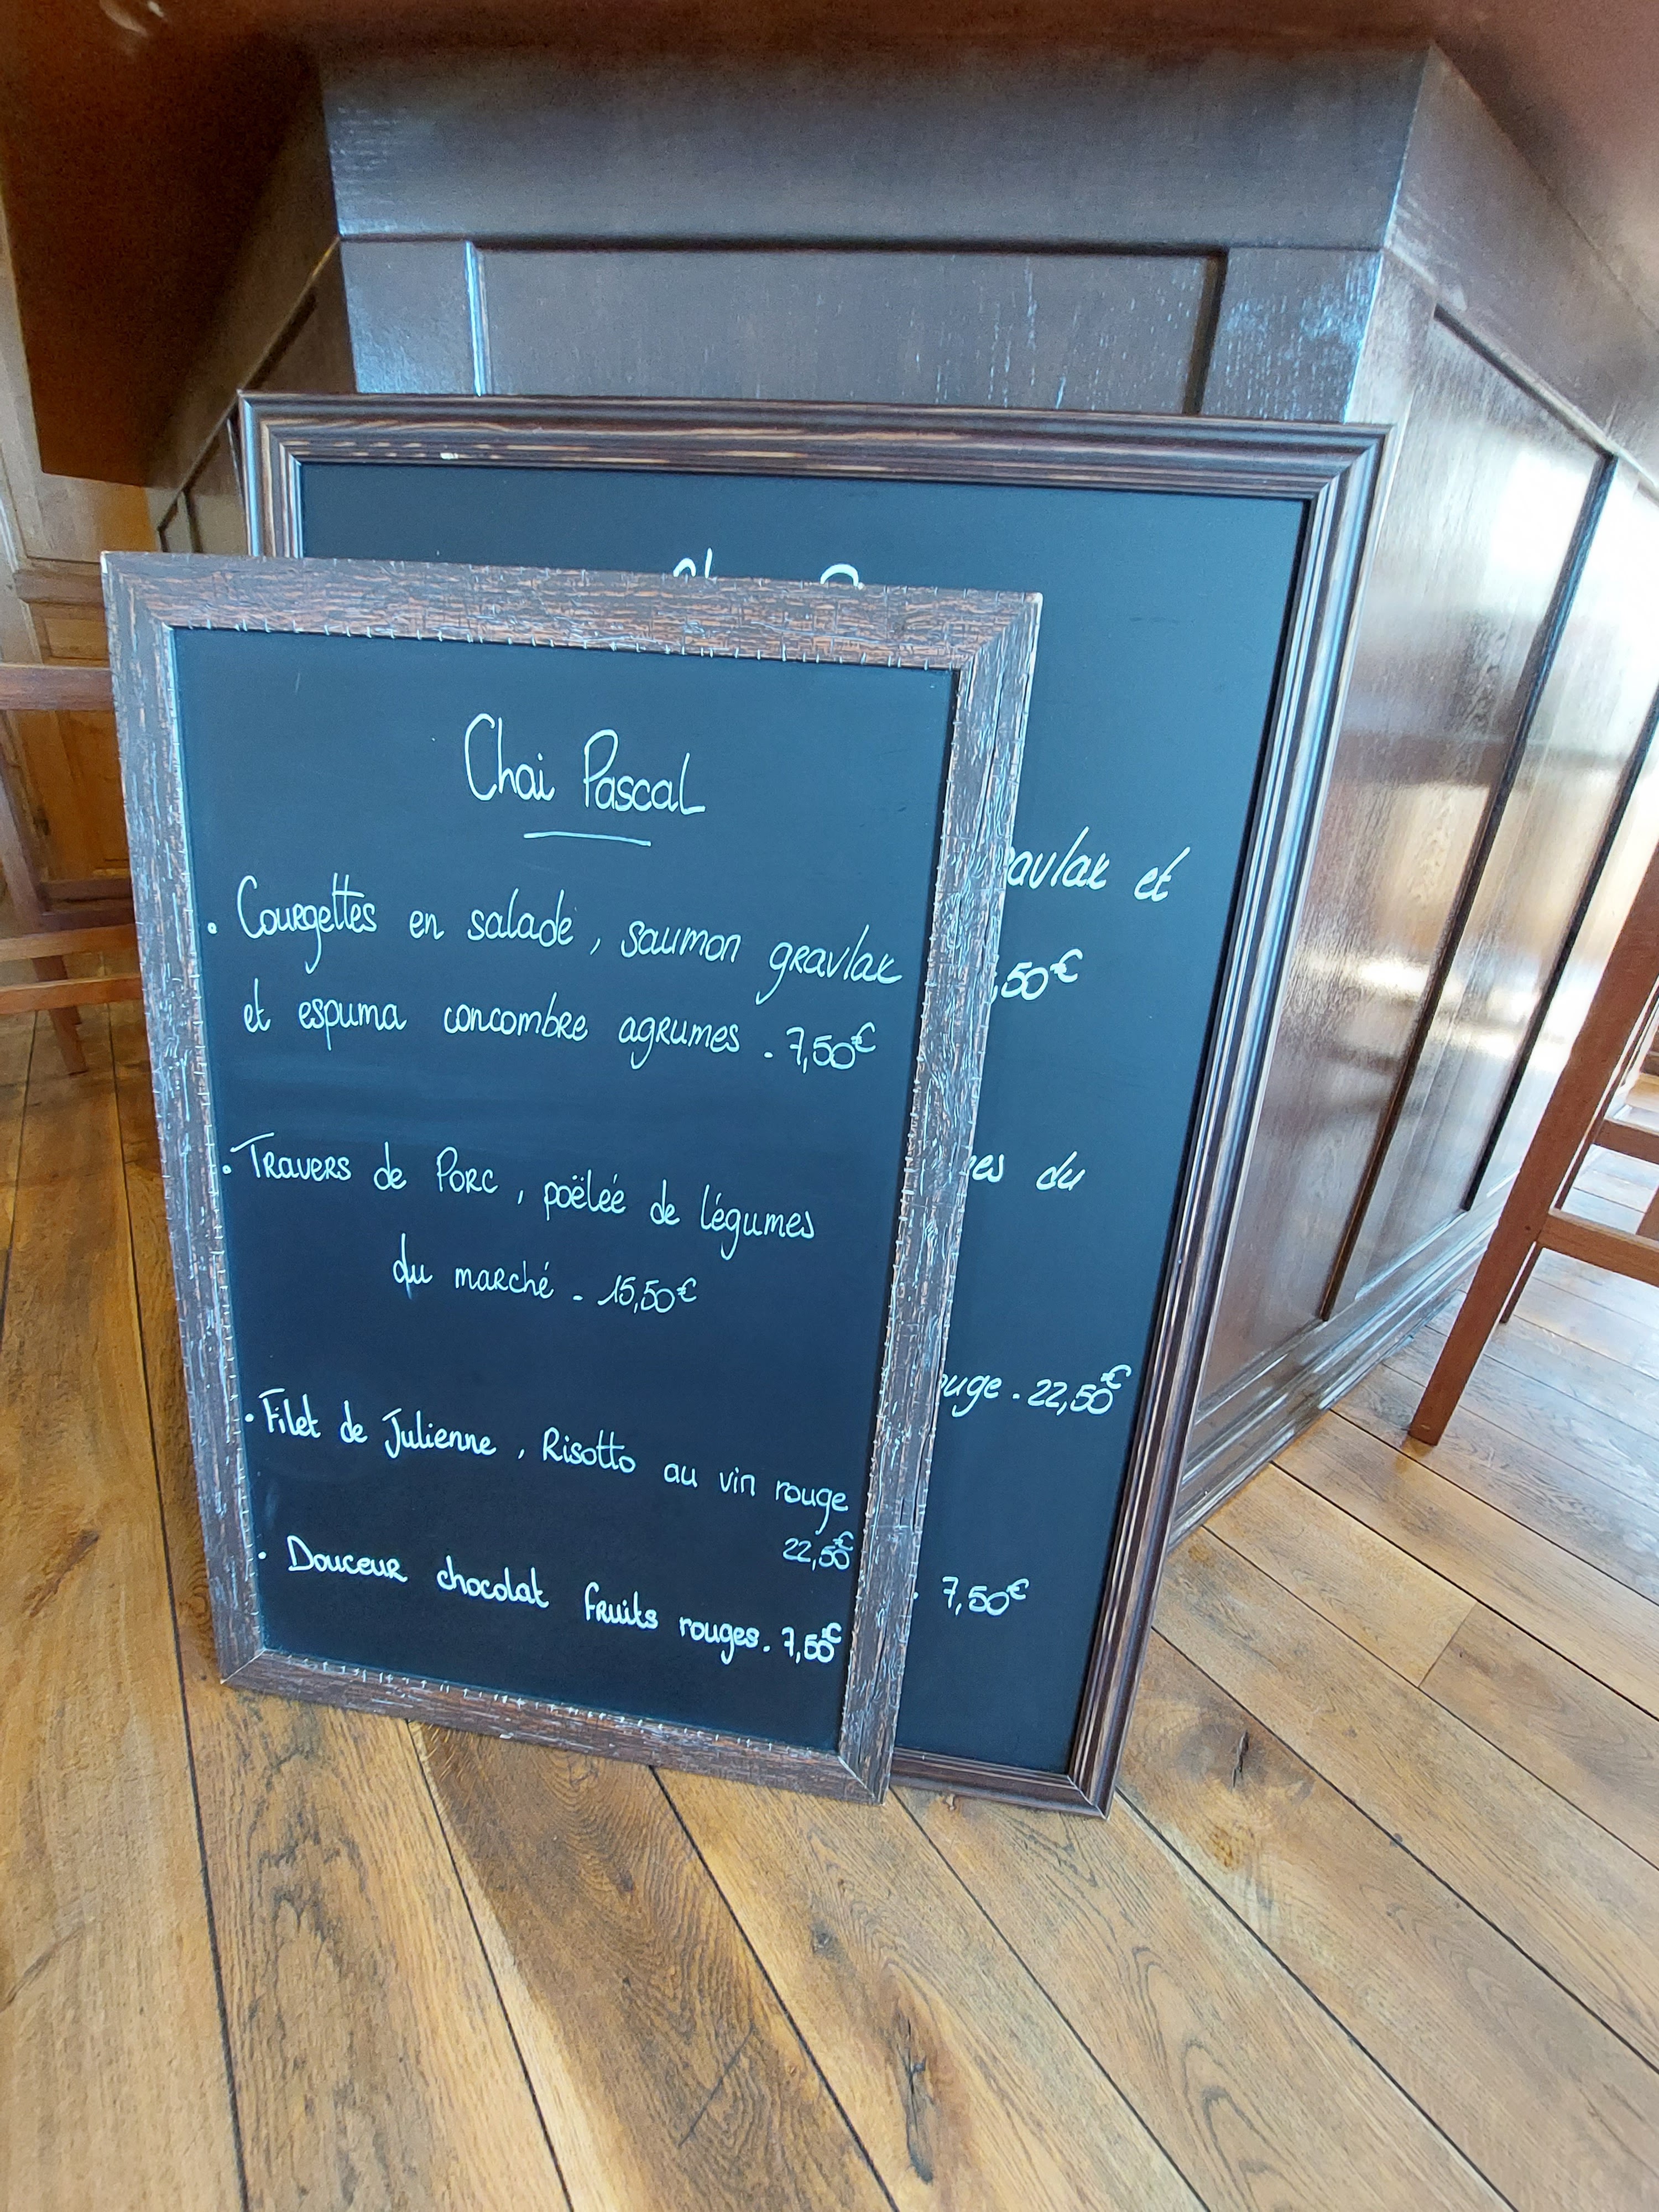 Chai Pascal
. Courgettes en salade, saumon gravlax
et espuma concombre agrumes - 7,50€
. Travers de Porc, poëlée de légumes
du marché - 15,50€
. Filet de Julienne, Risotto au vin rouge
22,50€
. Douceur chocolat fruits rouges. 7,50€
et
,50€
du
- 22,50€
. 7,50€